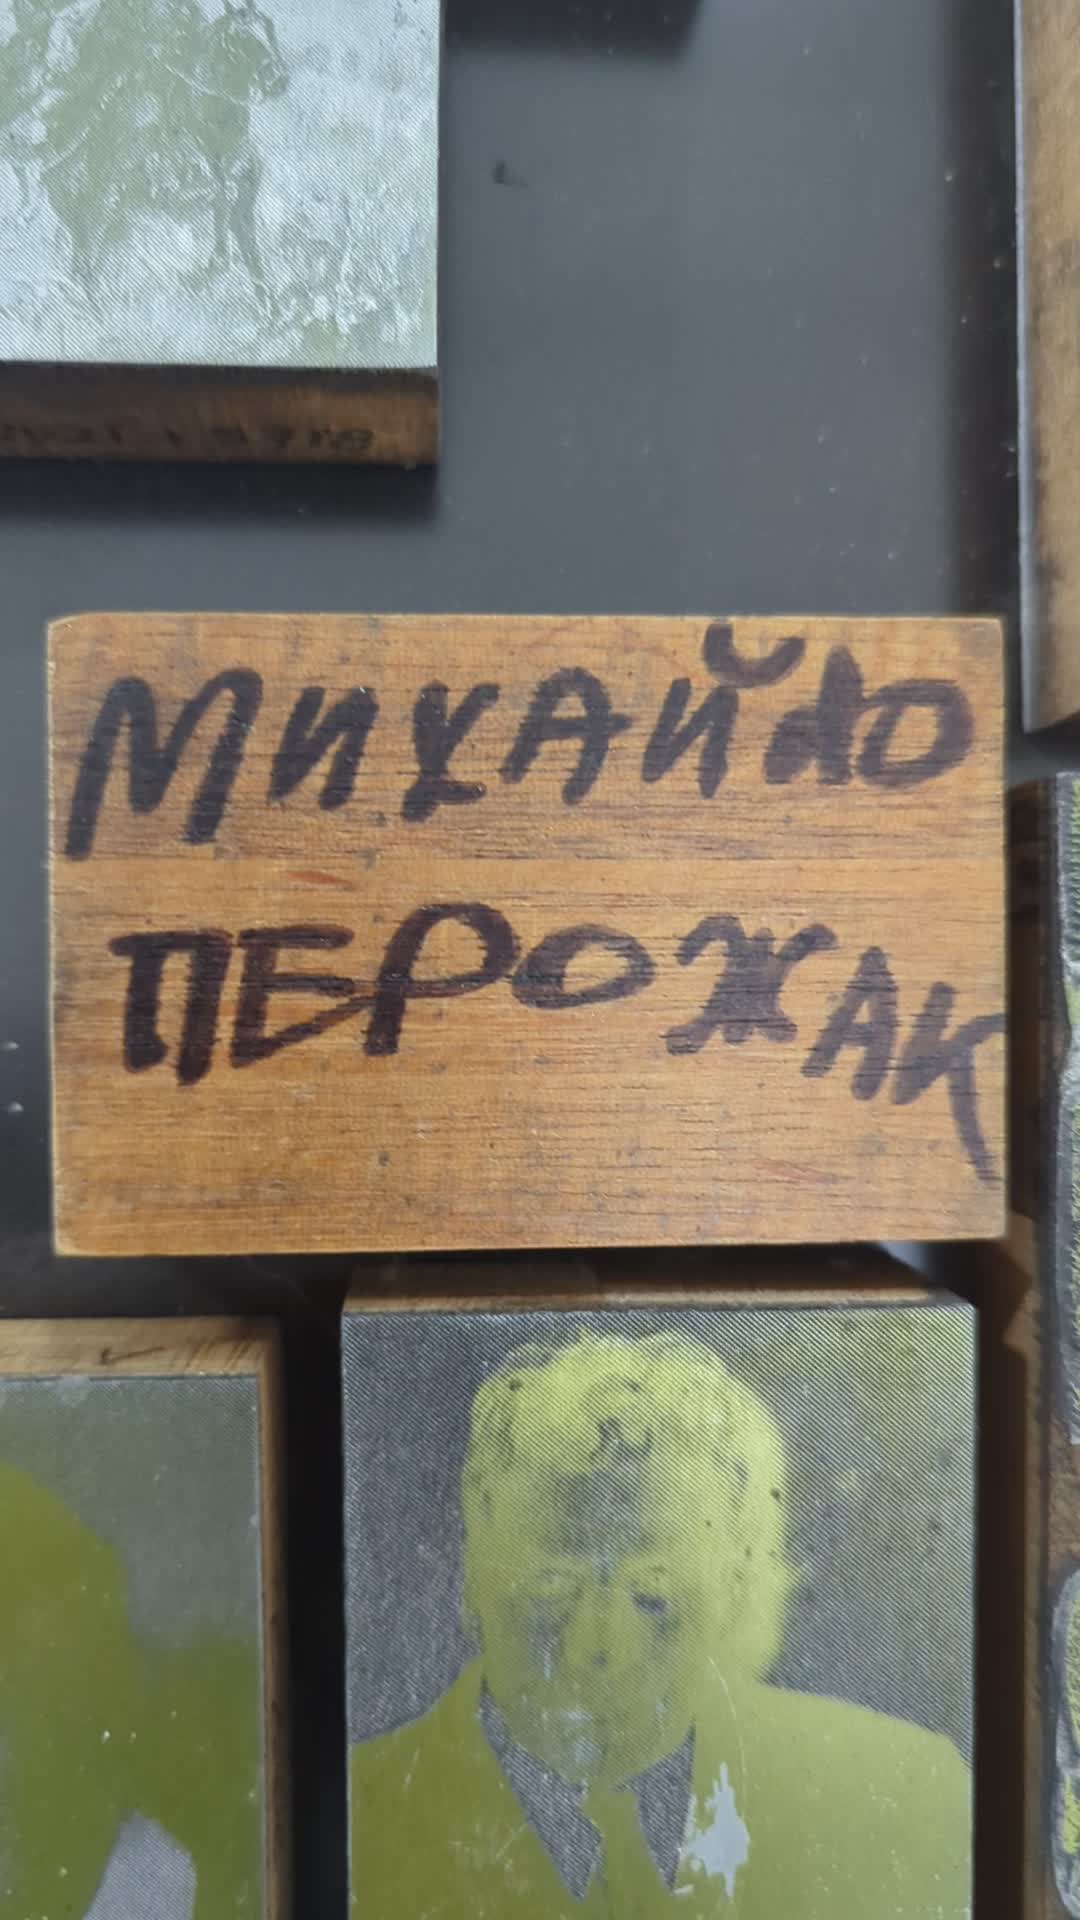 МИХАЙЛО
ПЕРОЖАК